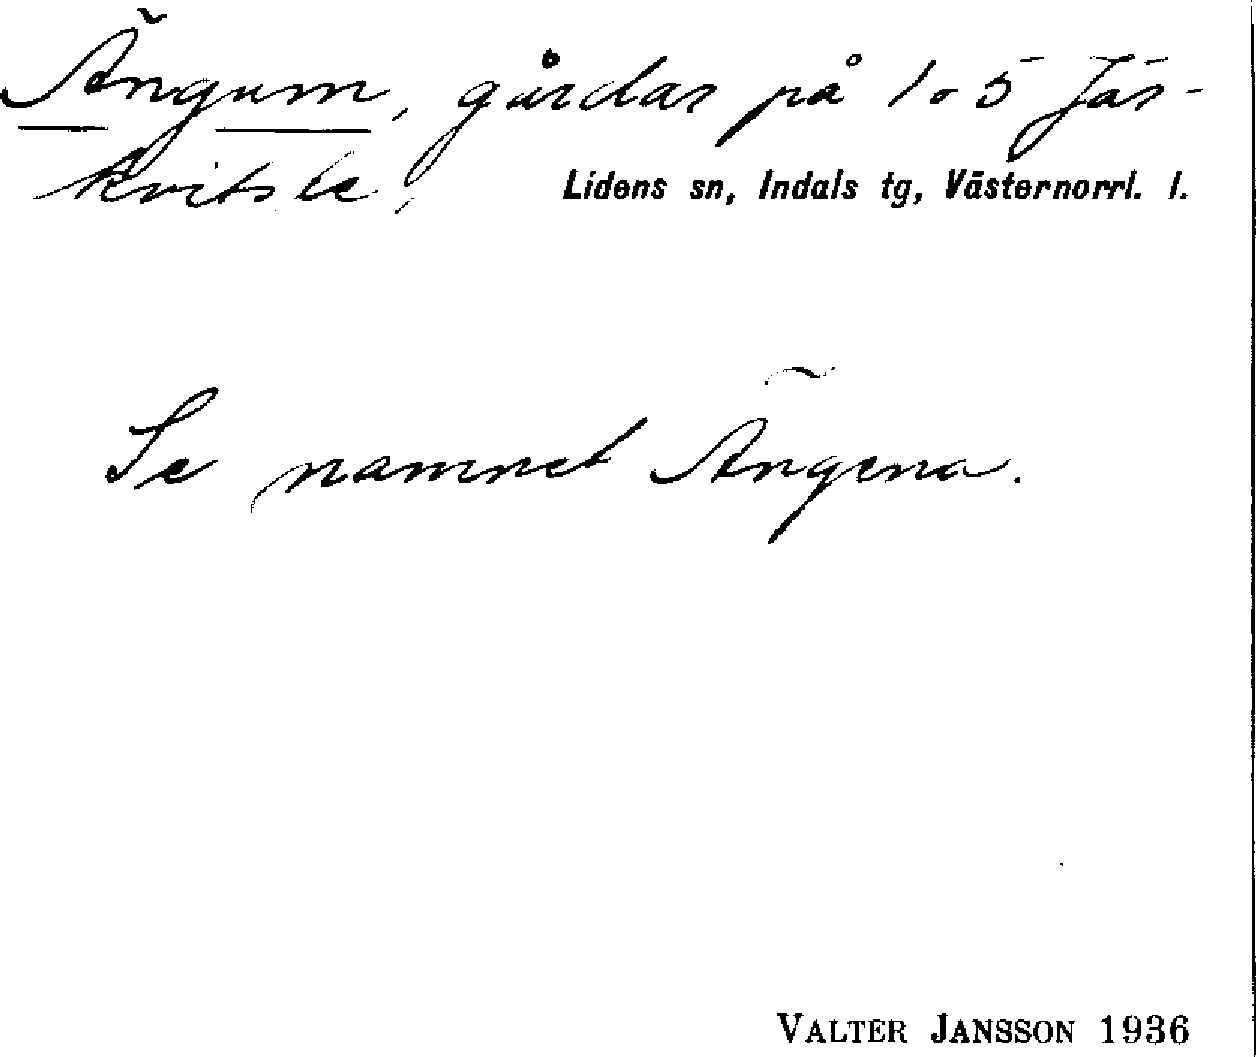 Ängum, gårdar på 1 o 5 Jär-
kvitsle, Lidens sn, Indals tg, Västernorrl. l.
Se namnet Ängena.
VALTER JANSSON 1936